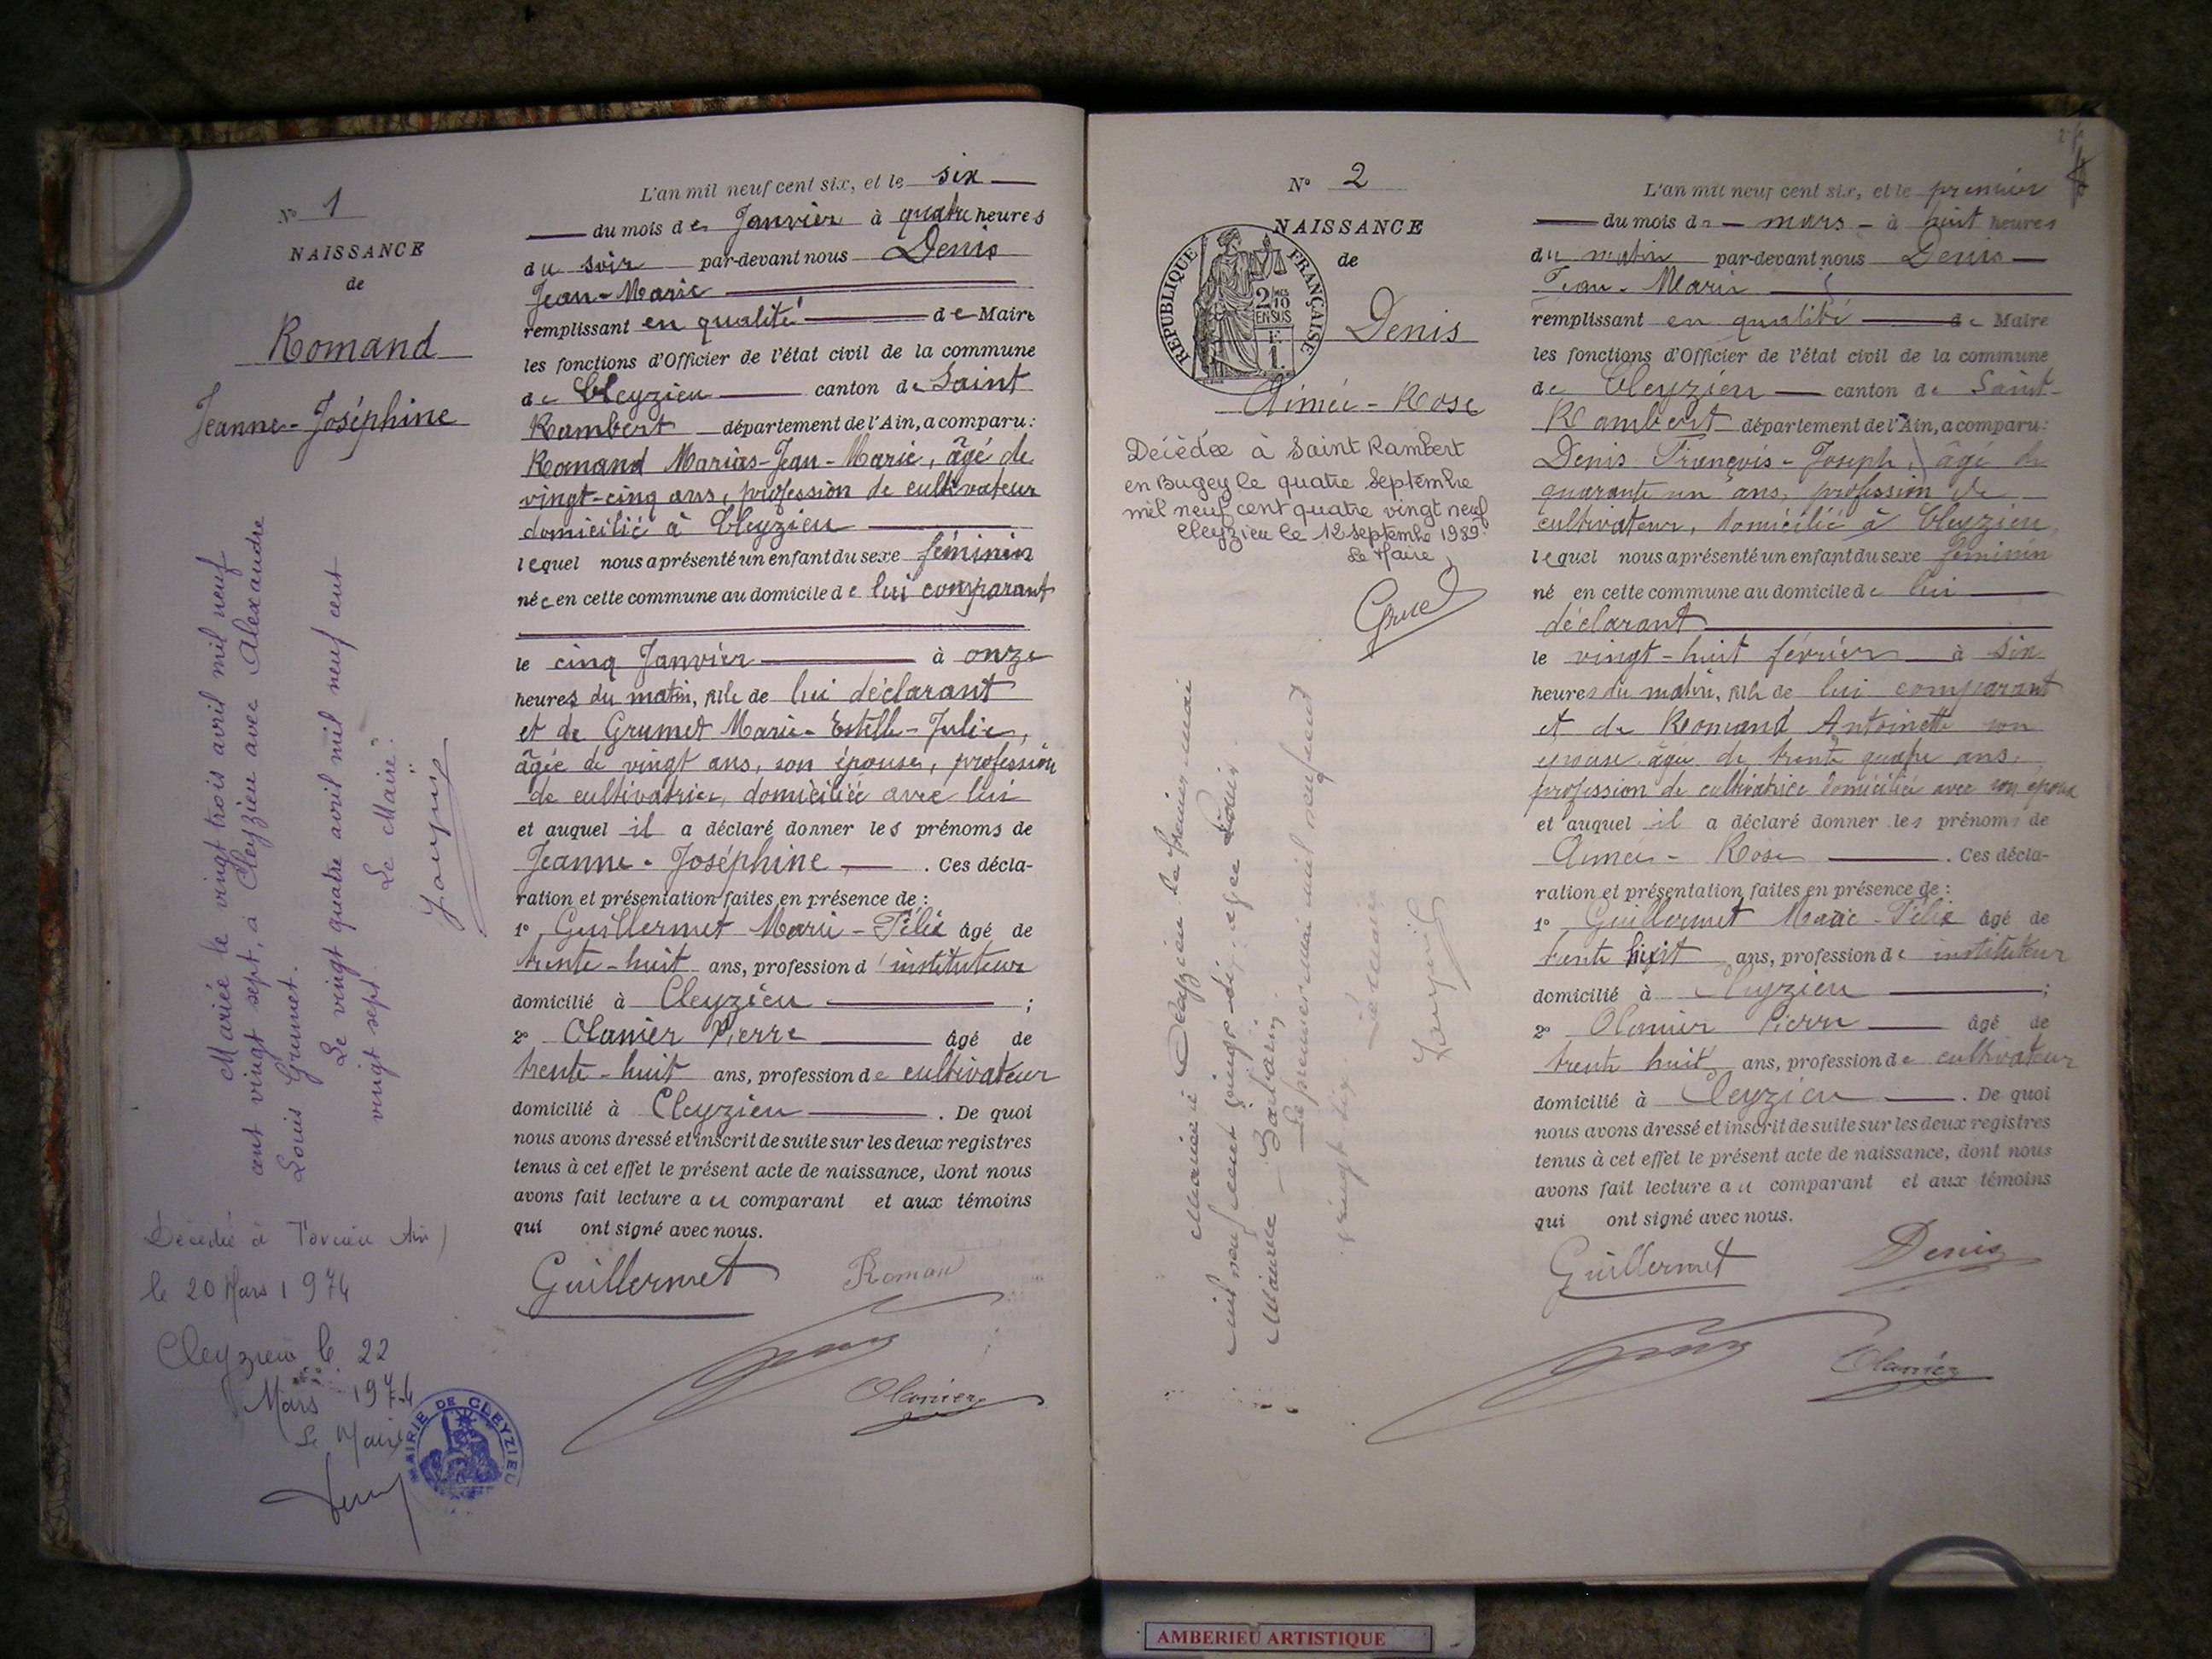 N° 1
NAISSANCE
de
Romand
Jeanne-Joséphine
Mariée le vingt trois avril mil neuf
cent vingt sept, à Cleyzieu avec Alexandre
Louis Grumet.
Le vingt quatre avril mil neuf cent
vingt sept
Le Maire:
Décédée à Torcieu Ain)
le 20 Mars 1974
Cleyzieu le 22
Mars 1974
Le Maire
MAIRIE DE CLEYZIEU
L'an mil neuf cent six, et le six
du mois de Janvier à quatre heures
du soir par-devant nous Denis
Jean-Marie
remplissant en qualité de Maire
les fonctions d'Officier de l'état civil de la commune
de Cleyzieu canton de Saint
Rambert département de l'Ain, a comparu:
Romand Marias-Jean-Marie, âgé de
vingt-cinq ans, profession de cultivateur
domicilié à Cleyzieu
lequel nous a présenté un enfant du sexe féminin
née en cette commune au domicile de lui comparant
le cinq Janvier à onze
heures du matin, fille de lui déclarant
et de Grumet Marie-Estelle-Julie,
âgée de vingt ans, son épouse, profession
de cultivatrice, domiciliée avec lui
et auquel il a déclaré donner les prénoms de
Jeanne-Joséphine. Ces décla-
ration et présentation faites en présence de:
1° Guillermet Marie-Félix âgé de
trente-huit ans, profession d'instituteur
domicilié à Cleyzieu ;
2° Olanier Pierre âgé de
trente-huit ans, profession de cultivateur
domicilié à Cleyzieu. De quoi
nous avons dressé et inscrit de suite sur les deux registres
tenus à cet effet le présent acte de naissance, dont nous
avons fait lecture au comparant et aux témoins
qui ont signé avec nous.
Guillermet Roman
Olanier
N° 2
NAISSANCE
de
REPUBLIQUE FRANÇAISE
2/10 EN SUS
F. 1.
Denis
Aimée-Rose
Décédée à Saint Rambert
en Bugey le quatre septembre
mil neuf cent quatre vingt neuf
Cleyzieu le 12 septembre 1989.
Le Maire,
Gruel
Mariée à Cleyzieu le premier mai
mil neuf cent vingt-six avec Louis
Maurice
Le premier mai mil neuf cent
vingt six.
Le Maire
L'an mil neuf cent six, et le premier
du mois de mars à huit heures
du matin par-devant nous Denis
Jean-Marie
remplissant en qualité de Maire
les fonctions d'Officier de l'état civil de la commune
de Cleyzieu canton de Saint-
Rambert département de l'Ain, a comparu:
Denis François-Joseph, âgé de
quarante un ans, profession de
cultivateur, domicilié à Cleyzieu,
lequel nous a présenté un enfant du sexe féminin
né en cette commune au domicile de lui
déclarant
le vingt-huit février à six
heures du matin, fille de lui comparant
et de Romand Antoinette son
épouse âgée de trente quatre ans,
profession de cultivatrice domiciliée avec son époux
et auquel il a déclaré donner les prénoms de
Aimée-Rose. Ces décla-
ration et présentation faites en présence de:
1° Guillermet Marie-Félix âgé de
trente huit ans, profession de instituteur
domicilié à Cleyzieu ;
2° Olanier Pierre âgé de
trente huit ans, profession de cultivateur
domicilié à Cleyzieu. De quoi
nous avons dressé et inscrit de suite sur les deux registres
tenus à cet effet le présent acte de naissance, dont nous
avons fait lecture au comparant et aux témoins
qui ont signé avec nous.
Guillermet Denis
Olanier
AMBERIEU ARTISTIQUE